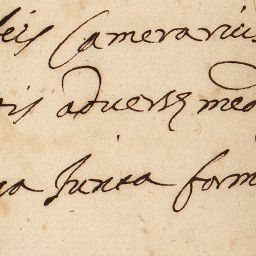 leis Camerarius
tis advers9 med
na iunea form